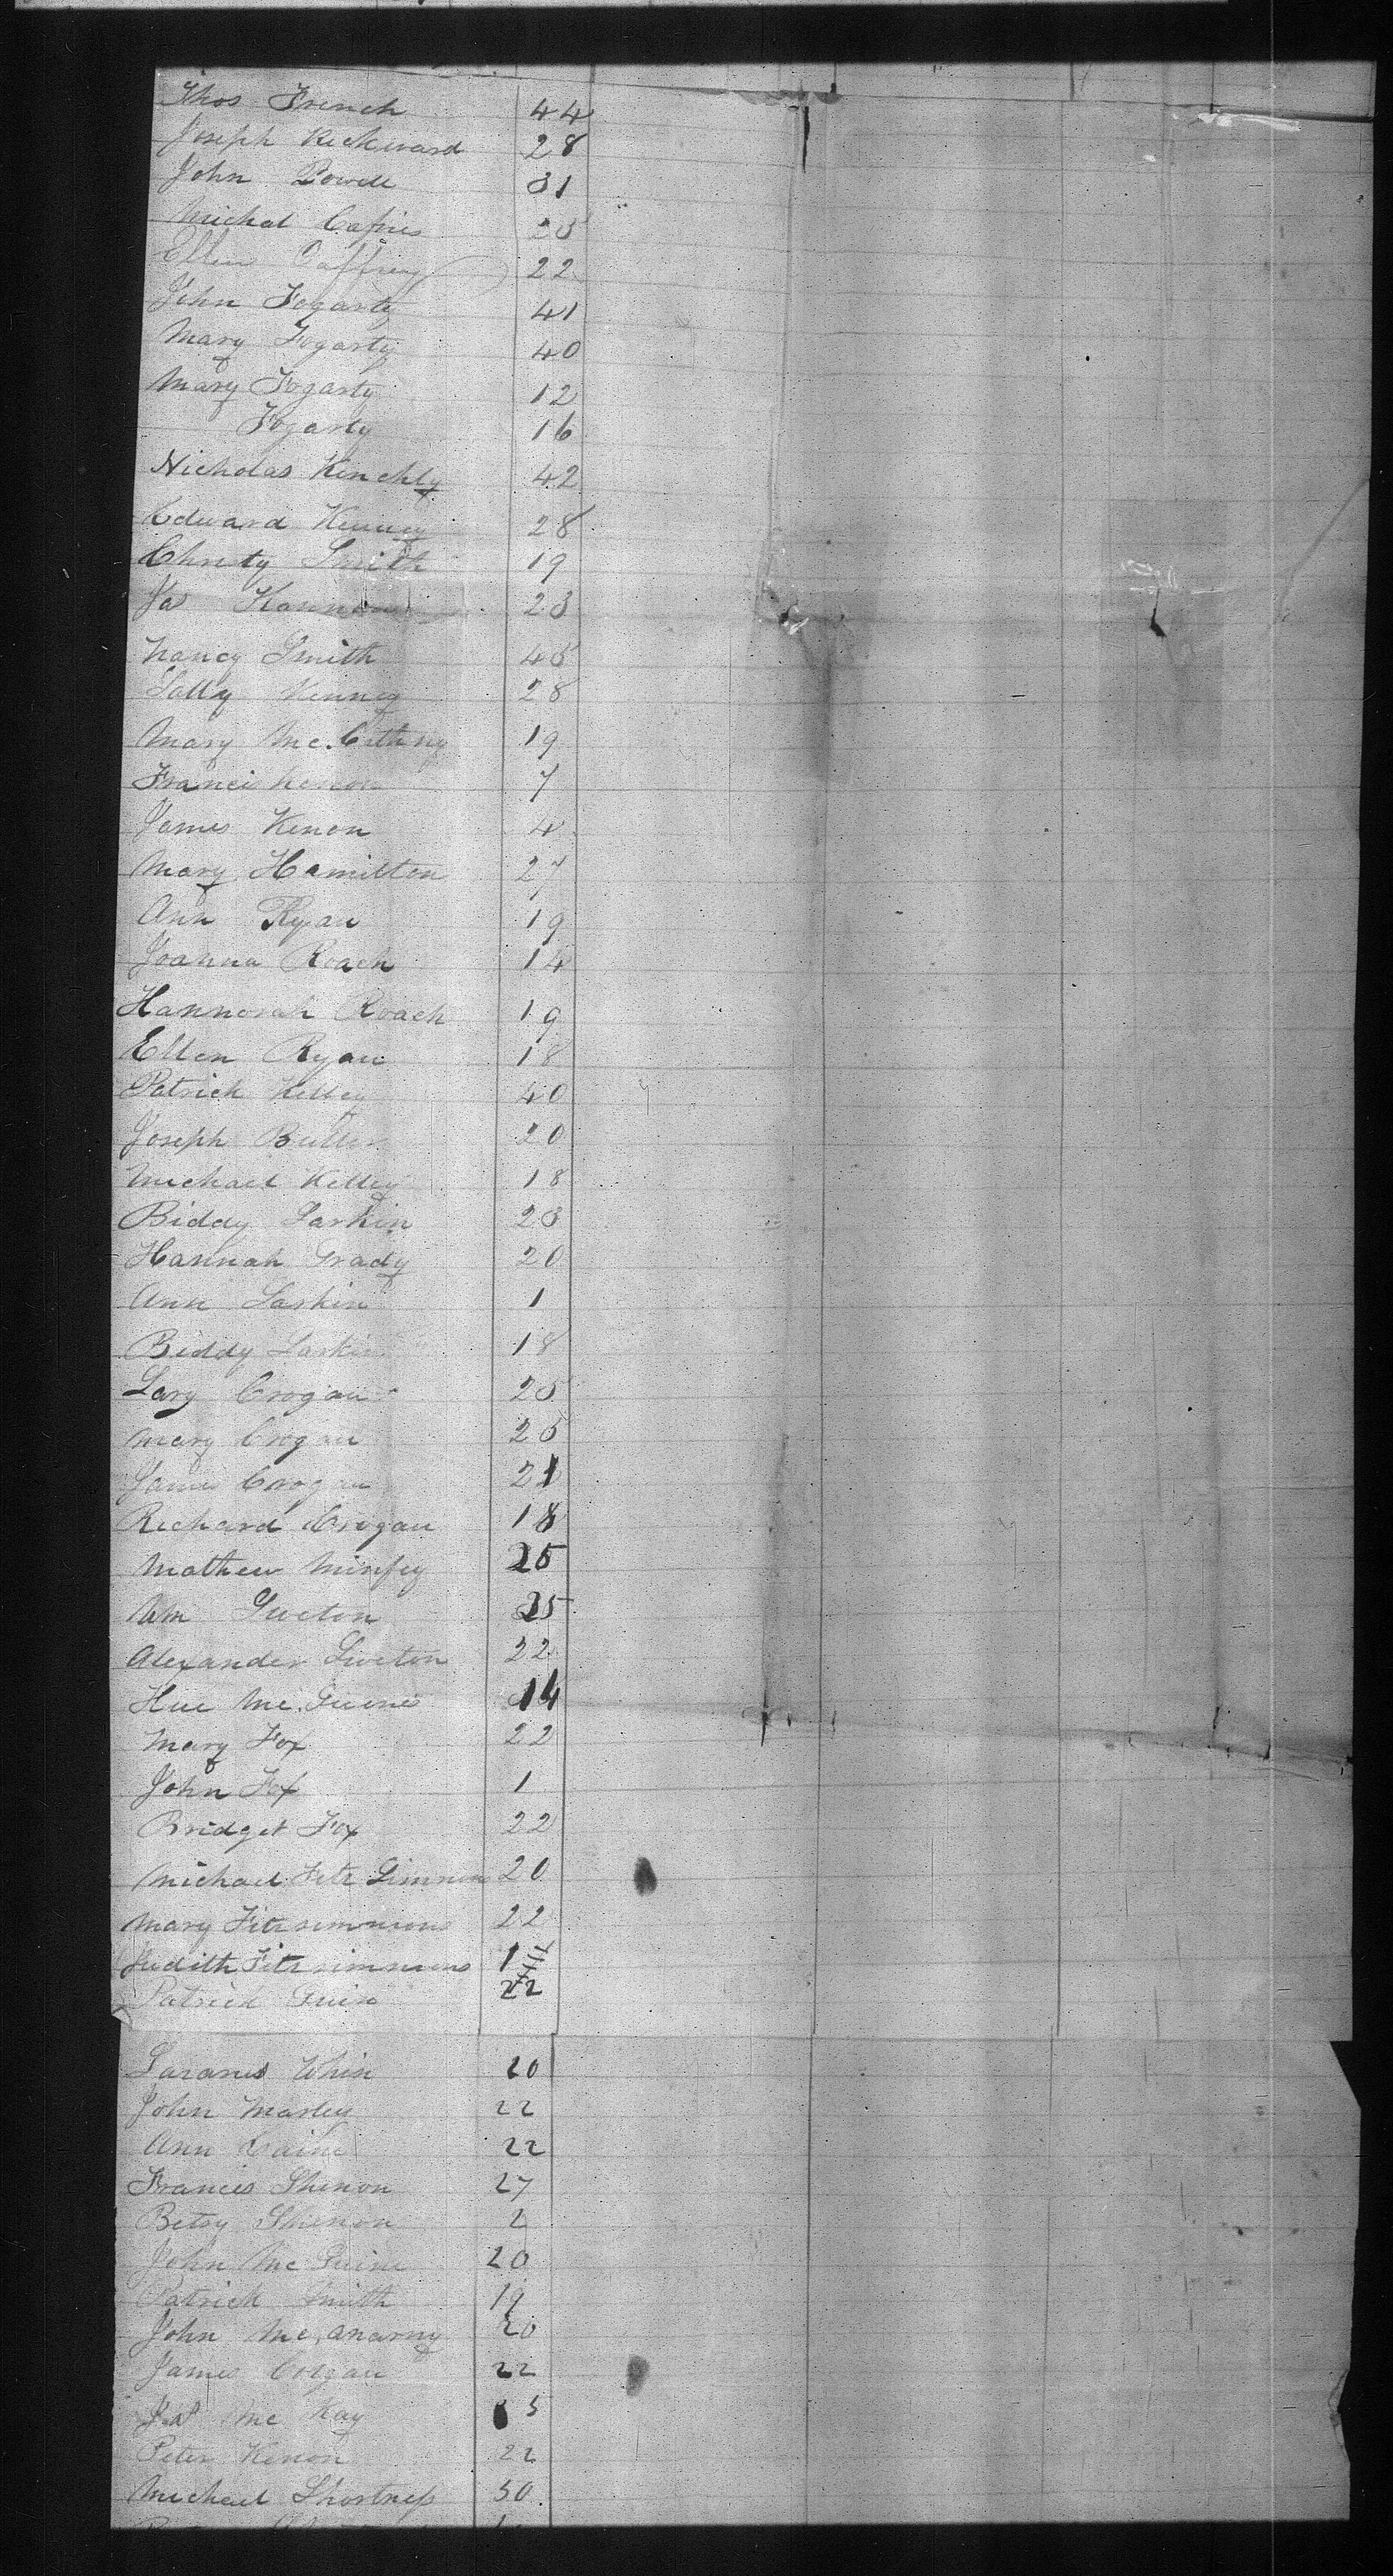 Thos French 44
Joseph Richward 28
John Powell 31
Michal 25
Ellen Caffrey 22
John Fogarty 41
Mary Fogarty 40
Mary Fogarty 12
Fogarty 16
Nicholas Kinchly 42
Edward Kenney 28
Christy Smith 19
Jas 23
Nancy Smith 45
Sally Kenney 28
Mary Mc. 19
Francis Kenon 7
James Kenon 4
Mary Hamilton 27
Ann Ryan 19
Joanna Roach 14
Hannorah Roach 19
Ellen Ryan 18
Patrick Kelley 40
Joseph Butler 20
Michael Kelley 18
Biddy Larkin 23
Hannah Grady 20
Ann Larkin 1
Biddy Larkin 18
Lary Crogan 25
Mary Crogan 25
James Crogan 21
Richard Crogan 18
Mathew 25
Wm 25
Alexander 22
Hue Mc. 14
Mary Fox 22
John Fox 1
Bridget Fox 22
Michael Fitz Simmons 20
Mary Fitzsimmons 22
Judith Fitzsimmons 1
Patrick 22
Whin 20
John Marley 22
Ann 22
Francis Shenon 27
Betsy Shenon 2
John Mc 20
Patrick Smith 19
John Mc. anarny 20
James Colgan 22
Jas Mc Kay
Peter Kenon 22
Michael Shortness 50